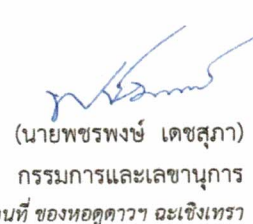 (นายพชรพงษ์ เดชสุภา)
กรรมการและเลขานุการ
ที่ ของหอดูดาวฯ ฉะเชิงเทรา